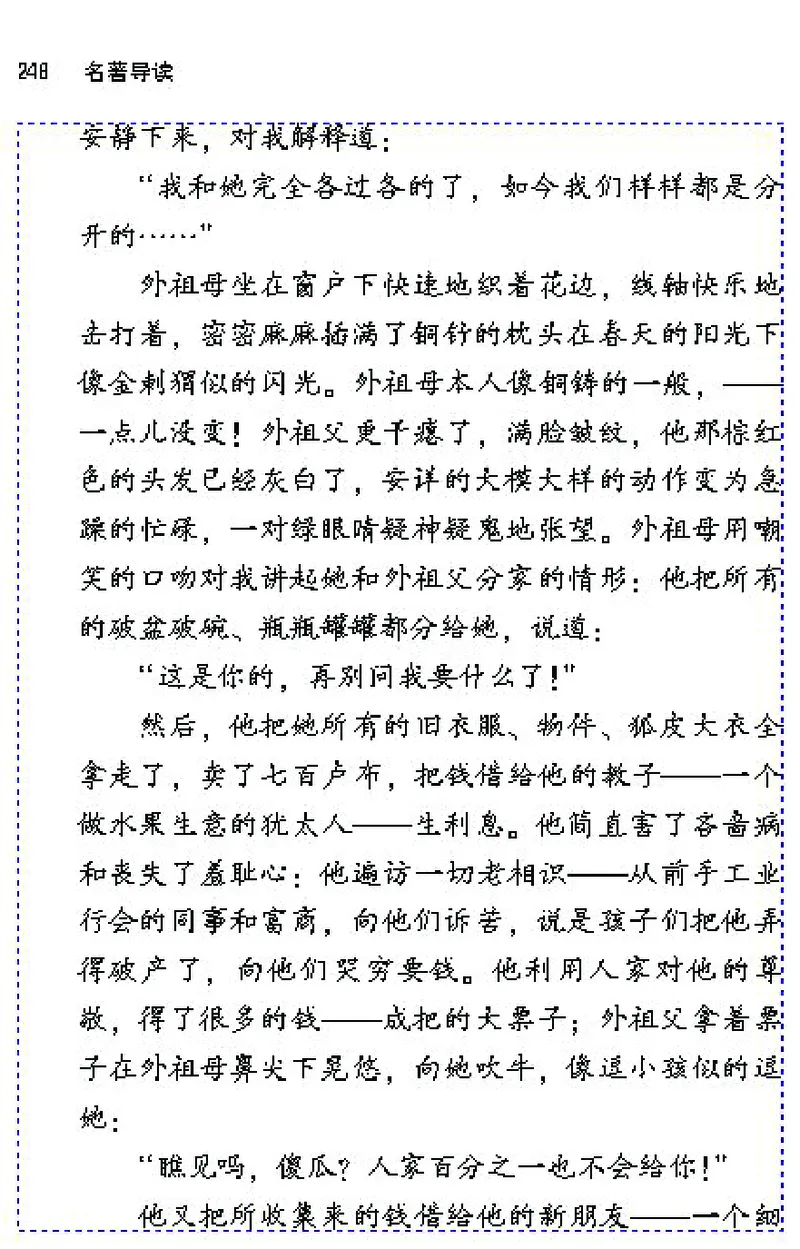 248 名著导读
安静下来，对我解释道：
“我和她完全各过各的了，如今我们样样都是分
开的……”
外祖母坐在窗户下快速地织着花边，线轴快乐地
击打着，密密麻麻插满了铜针的枕头在春天的阳光下
像金刺猬似的闪光。外祖母本人像铜铸的一般，——
一点儿没变！外祖父更干瘪了，满脸皱纹，他那棕红
色的头发已经灰白了，安详的大模大样的动作变为急
躁的忙碌，一对绿眼睛疑神疑鬼地张望。外祖母用嘲
笑的口吻对我讲起她和外祖父分家的情形：他把所有
的破盆破碗、瓶瓶罐罐都分给她，说道：
“这是你的，再别问我要什么了！”
然后，他把她所有的旧衣服、物件、狐皮大衣全
拿走了，卖了七百卢布，把钱借给他的教子——一个
做水果生意的犹太人——生利息。他简直害了吝啬病
和丧失了羞耻心：他遍访一切老相识——从前手工业
行会的同事和富商，向他们诉苦，说是孩子们把他弄
得破产了，向他们哭穷要钱。他利用人家对他的尊
敬，得了很多的钱——成把的大票子；外祖父拿着票
子在外祖母鼻尖下晃悠，向她吹牛，像逗小孩似的逗
她：
“瞧见吗，傻瓜？人家百分之一也不会给你！”
他又把所收集来的钱借给他的新朋友——一个细